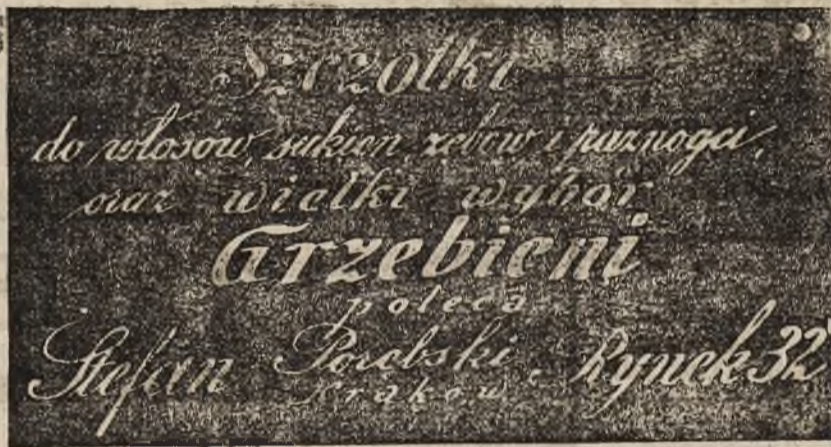 Szczotki
do włosów, sukien, zębów i paznogci,
oraz wielki wybór
Grzebieni
poleca
Stefan Porębski, Rynek 32
Kraków